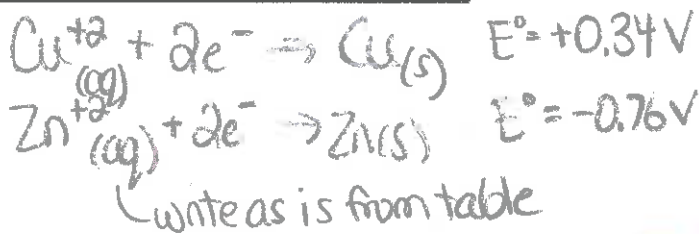 Cu⁺²(aq) + 2e⁻ → Cu(s) E°= +0.34 V
Zn⁺²(aq) + 2e⁻ → Zn(s) E° = -0.76V
write as is from table